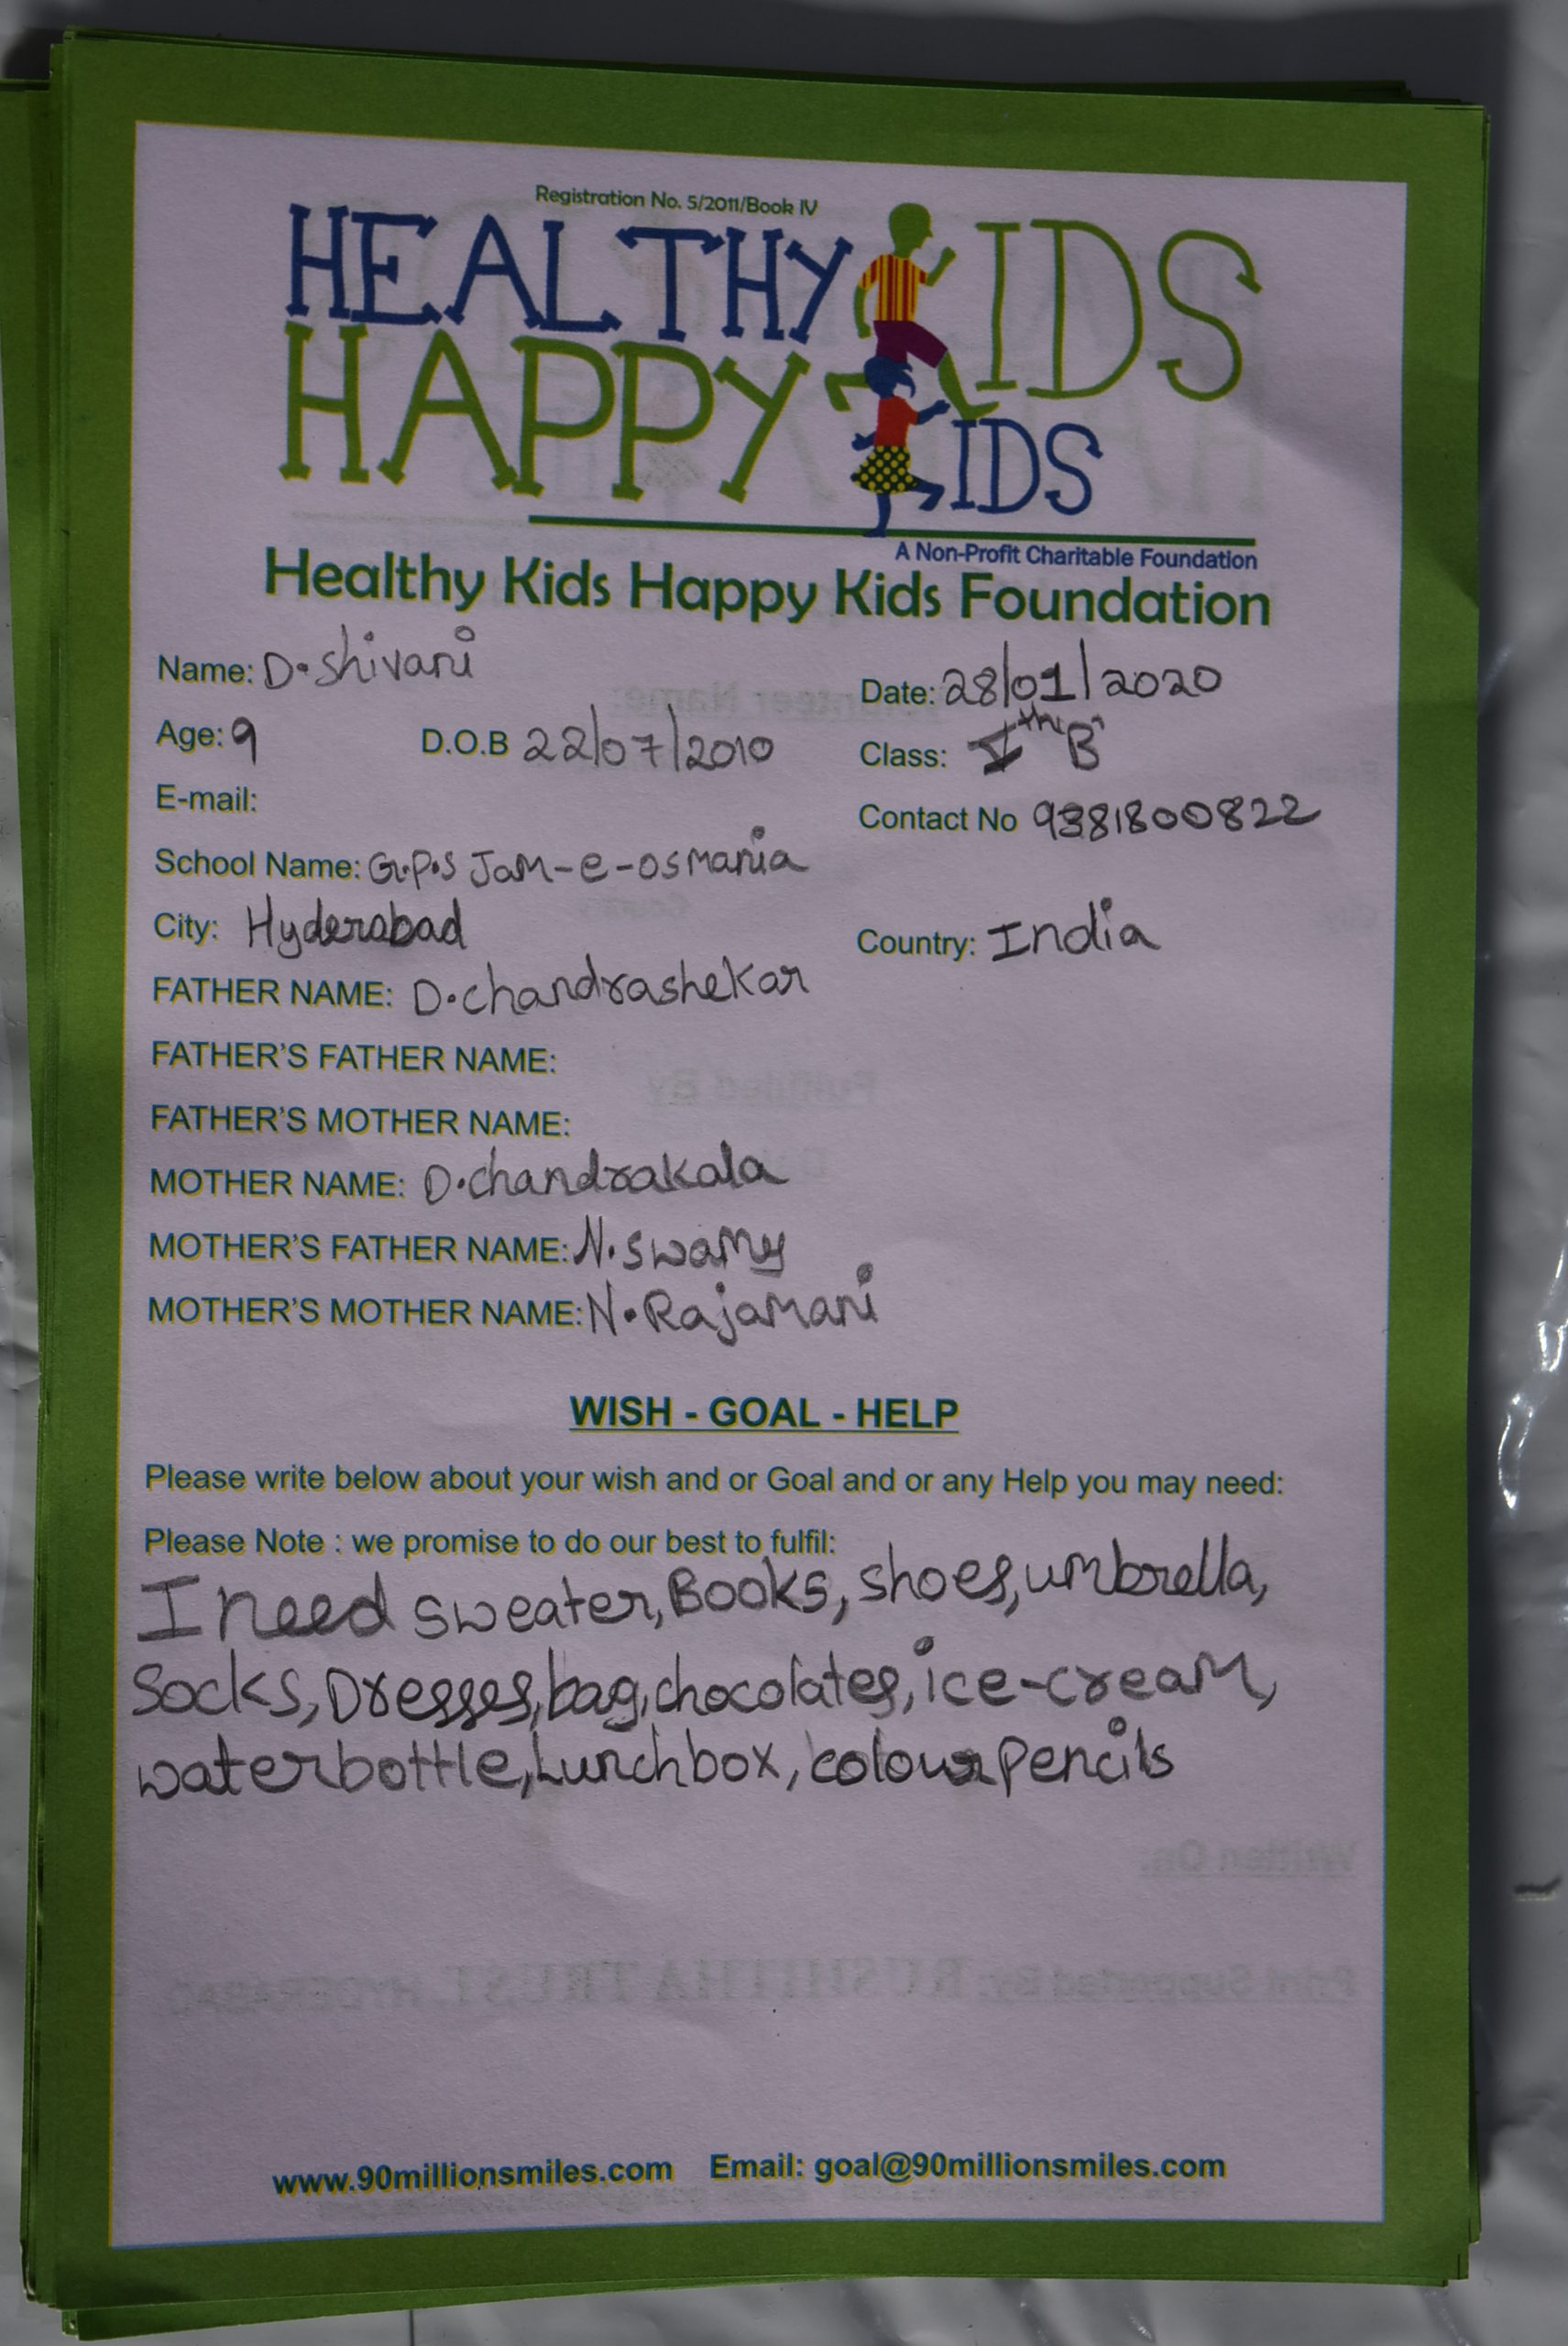 Registration No. 5/2011/Book IV
HEALTHY KIDS
HAPPY KIDS
A Non-Profit Charitable Foundation
Healthy Kids Happy Kids Foundation
Name: D. Shivani
Date: 28/01/2020
Age: 9 D.O.B 22/07/2010
Class: th "B"
E-mail:
Contact No 9381800822
School Name: G.P.S Jam-e-osmania
City: Hyderabad
Country: India
FATHER NAME: D. chandrashekar
FATHER'S FATHER NAME:
FATHER'S MOTHER NAME:
MOTHER NAME: D. chandrakala
MOTHER'S FATHER NAME: N. Swamy
MOTHER'S MOTHER NAME: N. Rajamani
WISH - GOAL - HELP
Please write below about your wish and or Goal and or any Help you may need:
Please Note : we promise to do our best to fulfil:
I need sweater, Books, shoes, umbrella,
Socks, Dresses, bag, chocolates, ice-cream,
waterbottle, Lunchbox, colour pencils
Written On:
Print Supported By: RUSHITHA TRUST, HYDERABAD
www.90millionsmiles.com Email: goal@90millionsmiles.com